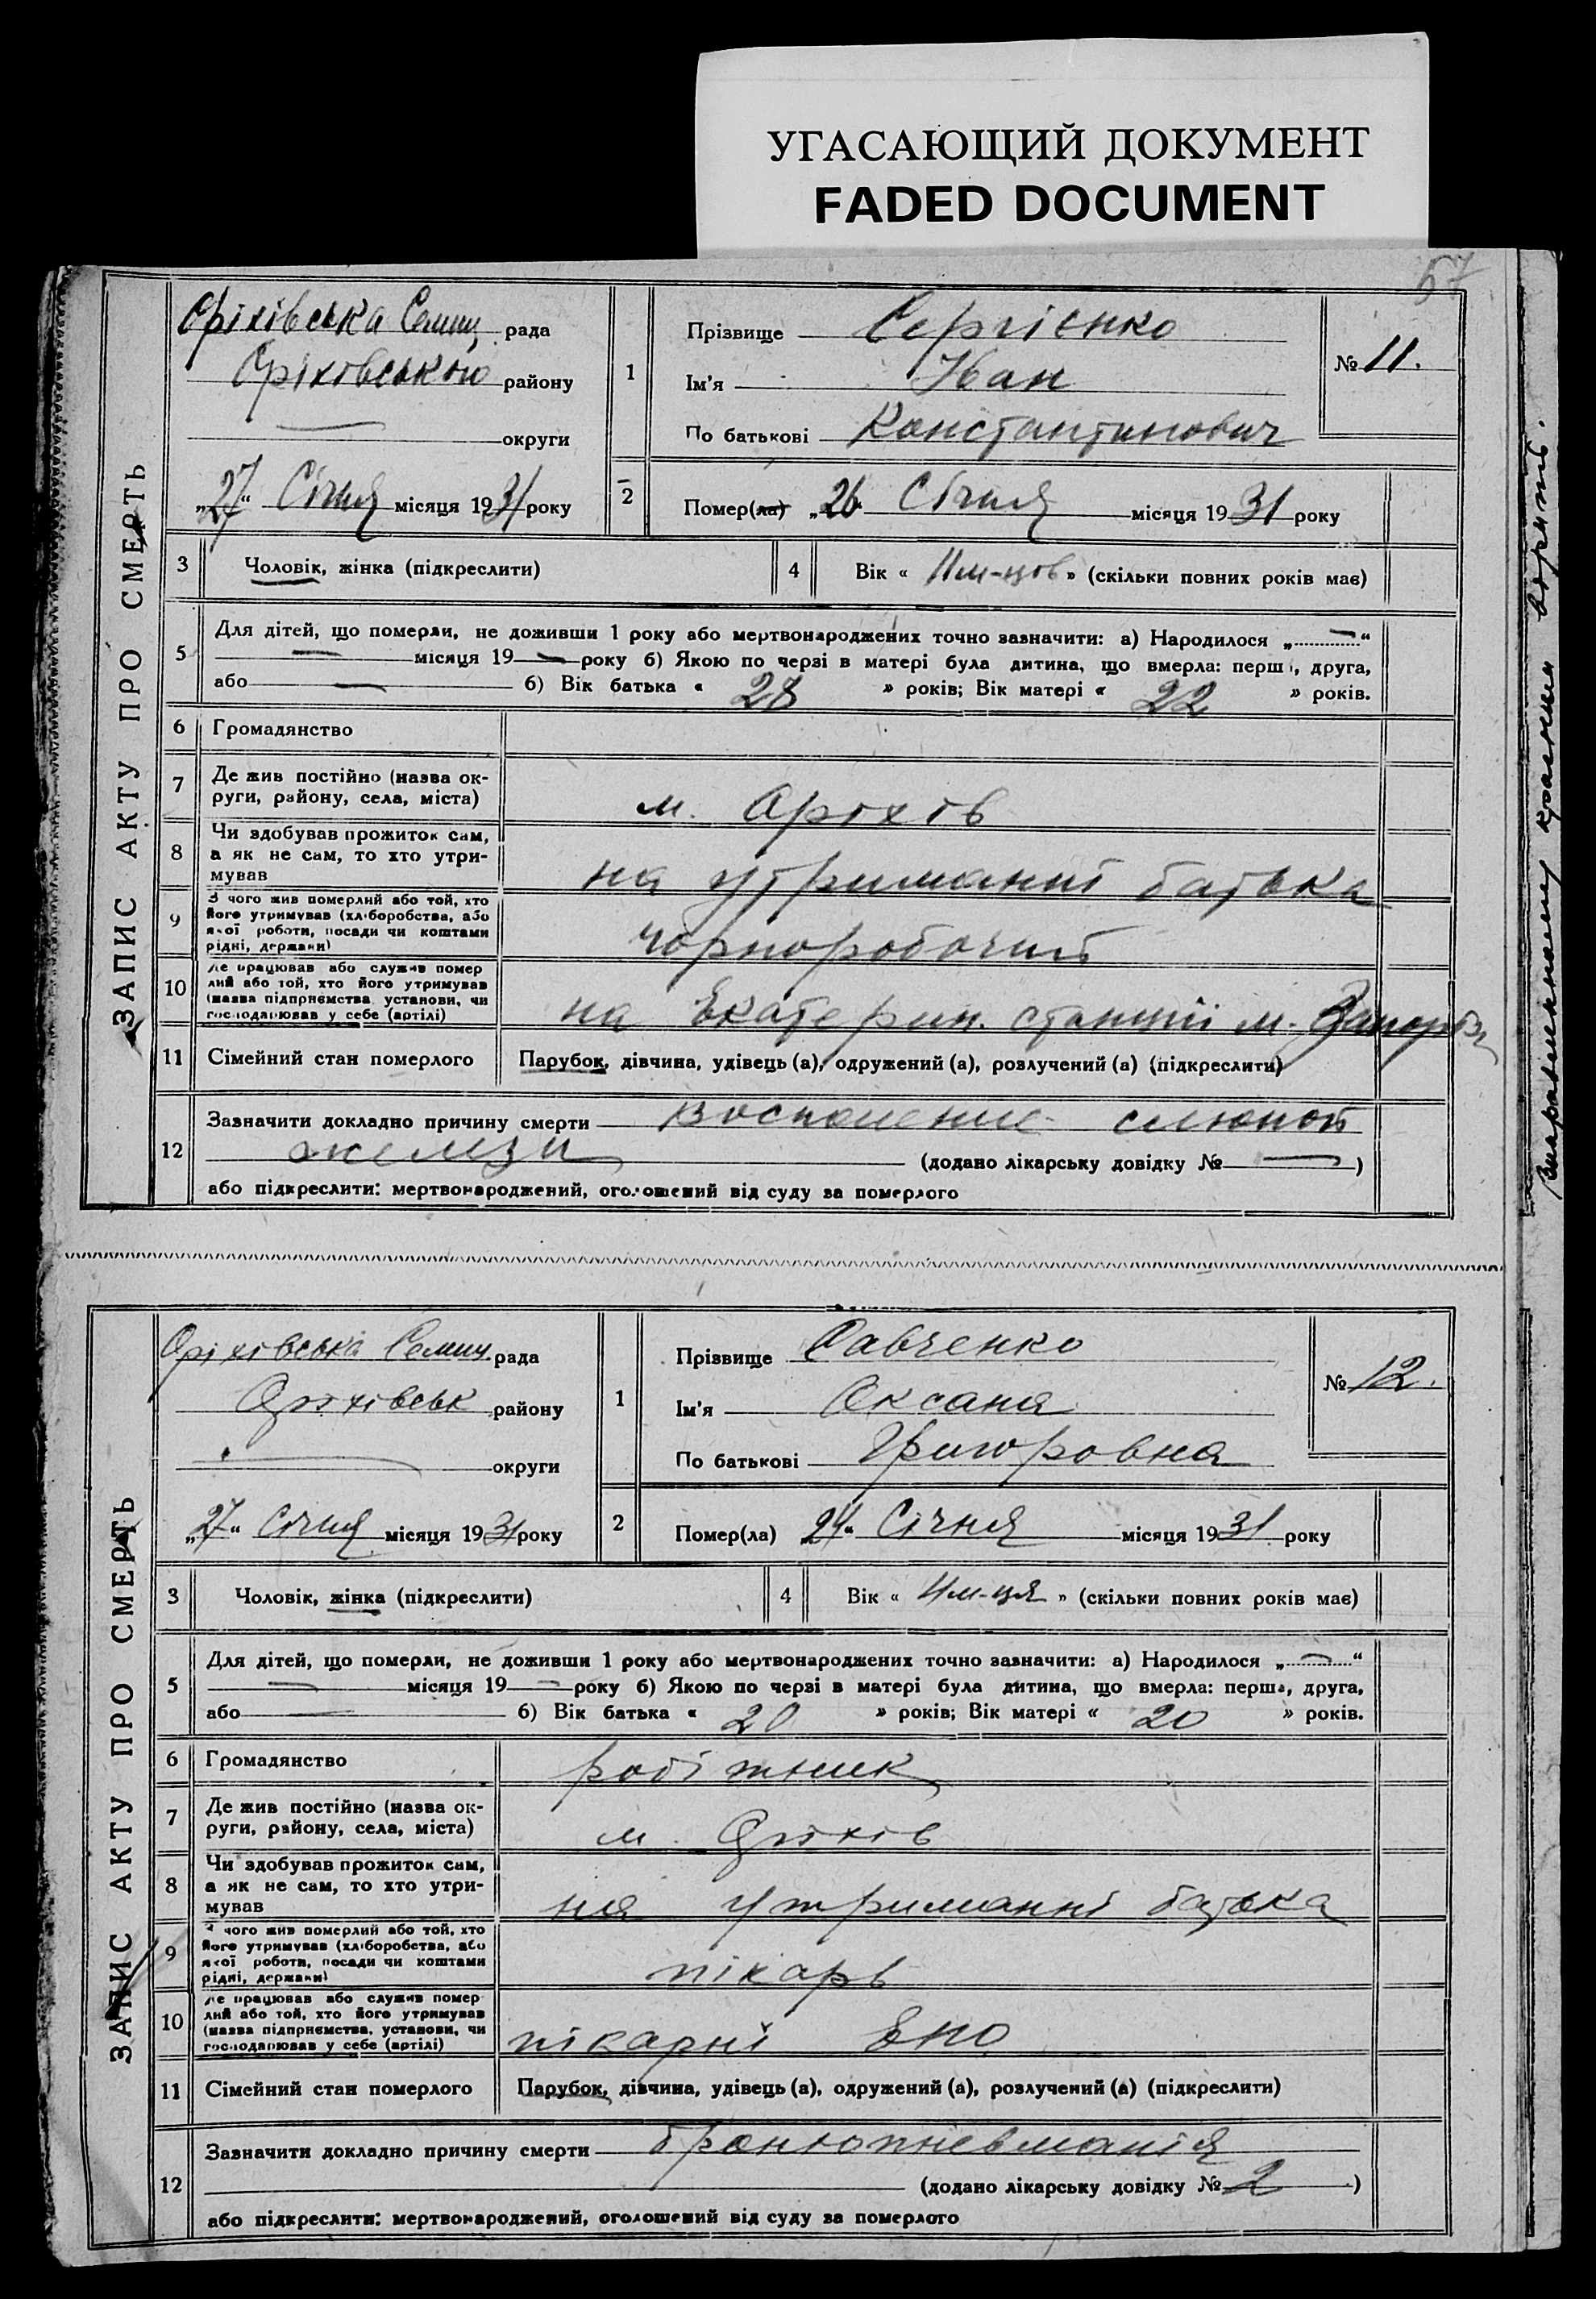 УГАСАЮЩИЙ ДОКУМЕНТ
FADED DOCUMENT
57
ЗАПИС АКТУ ПРО СМЕРТЬ
Оріхівська Селищ. рада
Оріховського району
округи
„27“ Січня місяця 1931 року
1
Прізвище Сергієнко
Ім'я Иван
По батькові Константинович
№ 11.
2
Помер(ла) „26 Січня місяця 1931 року
3 Чоловік, жінка (підкреслити)
4 Вік « 11 м-цов » (скільки повних років має)
5 Для дітей, що померли, не доживши 1 року або мертвонароджених точно зазначити: а) Народилося „ — “
— місяця 19 — року б) Якою по черзі в матері була дитина, що вмерла: перша, друга,
або — б) Вік батька « 28 » років; Вік матері « 22 » років.
6 Громадянство
7 Де жив постійно (назва ок-
руги, району, села, міста) м. Оріхів
8 Чи здобував прожиток сам,
а як не сам, то хто утри-
мував на утриманні батька
9 З чого жив померлий або той, хто
його утримував (хліборобства, або
якої роботи, посади чи коштами
рідні, держави) чорноробочий
10 Де працював або служив помер
лий або той, хто його утримував
(назва підприємства, установи, чи
господарював у себе (артілі) на Екатерин. станції м.
11 Сімейний стан померлого Парубок, дівчина, удівець (а), одружений (а), розлучений (а) (підкреслити)
12 Зазначити докладно причину смерти воспаление слюной
желези (додано лікарську довідку № — )
або підкреслити: мертвонароджений, оголошений від суду за померлого
ЗАПИС АКТУ ПРО СМЕРТЬ
Оріхівська Селищ. рада
Оріхівськ району
округи
„27“ Січня місяця 1931 року
1
Прізвище Савченко
Ім'я Оксана
По батькові Григоровна
№ 12.
2
Помер(ла) „24“ Січня місяця 1931 року
3 Чоловік, жінка (підкреслити)
4 Вік « 4 м-ця » (скільки повних років має)
5 Для дітей, що померли, не доживши 1 року або мертвонароджених точно зазначити: а) Народилося „ — “
— місяця 19 — року б) Якою по черзі в матері була дитина, що вмерла: перша, друга,
або — б) Вік батька « 20 » років; Вік матері « 20 » років.
6 Громадянство робітник
7 Де жив постійно (назва ок-
руги, району, села, міста) м. Оріхів
8 Чи здобував прожиток сам,
а як не сам, то хто утри-
мував на утриманні батька
9 З чого жив померлий або той, хто
його утримував (хліборобства, або
якої роботи, посади чи коштами
рідні, держави) пікарь
10 Де працював або служив помер
лий або той, хто його утримував
(назва підприємства, установи, чи
господарював у себе (артілі) пікарні ЕПО
11 Сімейний стан померлого Парубок, дівчина, удівець (а), одружений (а), розлучений (а) (підкреслити)
12 Зазначити докладно причину смерти бронхопневманія
(додано лікарську довідку № 2 )
або підкреслити: мертвонароджений, оголошений від суду за померлого